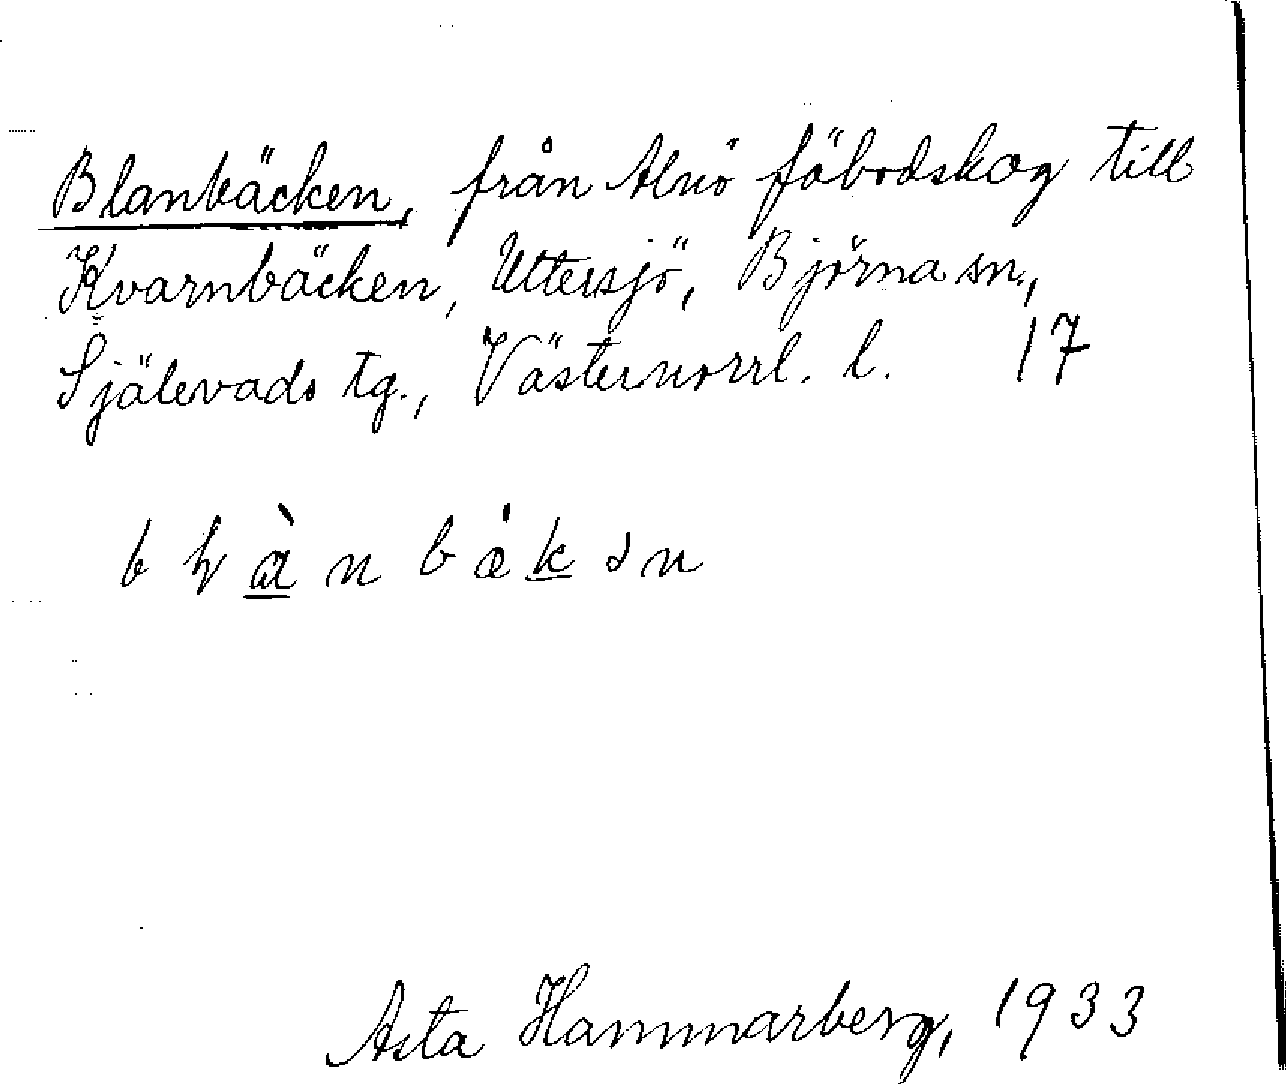 Blanbäcken, från Alnö fäbodskog till
Kvarnbäcken, Uttersjö, Björna sn.,
Själevads tg., Västernorrl. l. 17
Asta Hammarberg, 1933